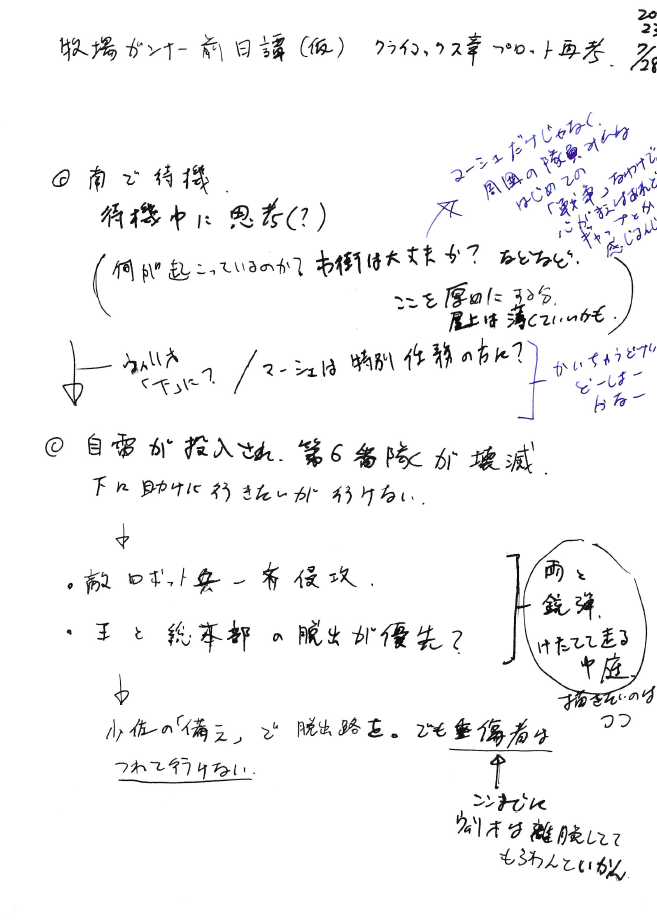 牧場ガンナー前日譚(仮) クライマックス章プロット再考.
2023 7/28
◎ 南で待機.
待機中に思考(?)
マーシェだけじゃなく.
周囲の隊員みんな
はじめての
「戦争」なわけで
心がまえはあれど
ギャップとか
感じるんじ
(何が起こっているのか? お街は大丈夫か? などなど.
ここを厚めにする分.
屋上は薄くていいかも.)
「下」に? / マーシェは特別任務の方に?
どーしよー
かなー
◎ 自雷が投入され、第6番隊が壊滅.
下に助けに行きたいが行けない.
↓
・敵ロボット兵一斉侵攻.
・王と総本部の脱出が優先?
雨と
銃弾.
けたてて走る
中庭.
描きたいのは
ココ
↓
少佐の「備え」で脱出路を。でも重傷者は
つれて行けない.
↑
ここまでに
ウィリオは離脱してて
もらわんといかん